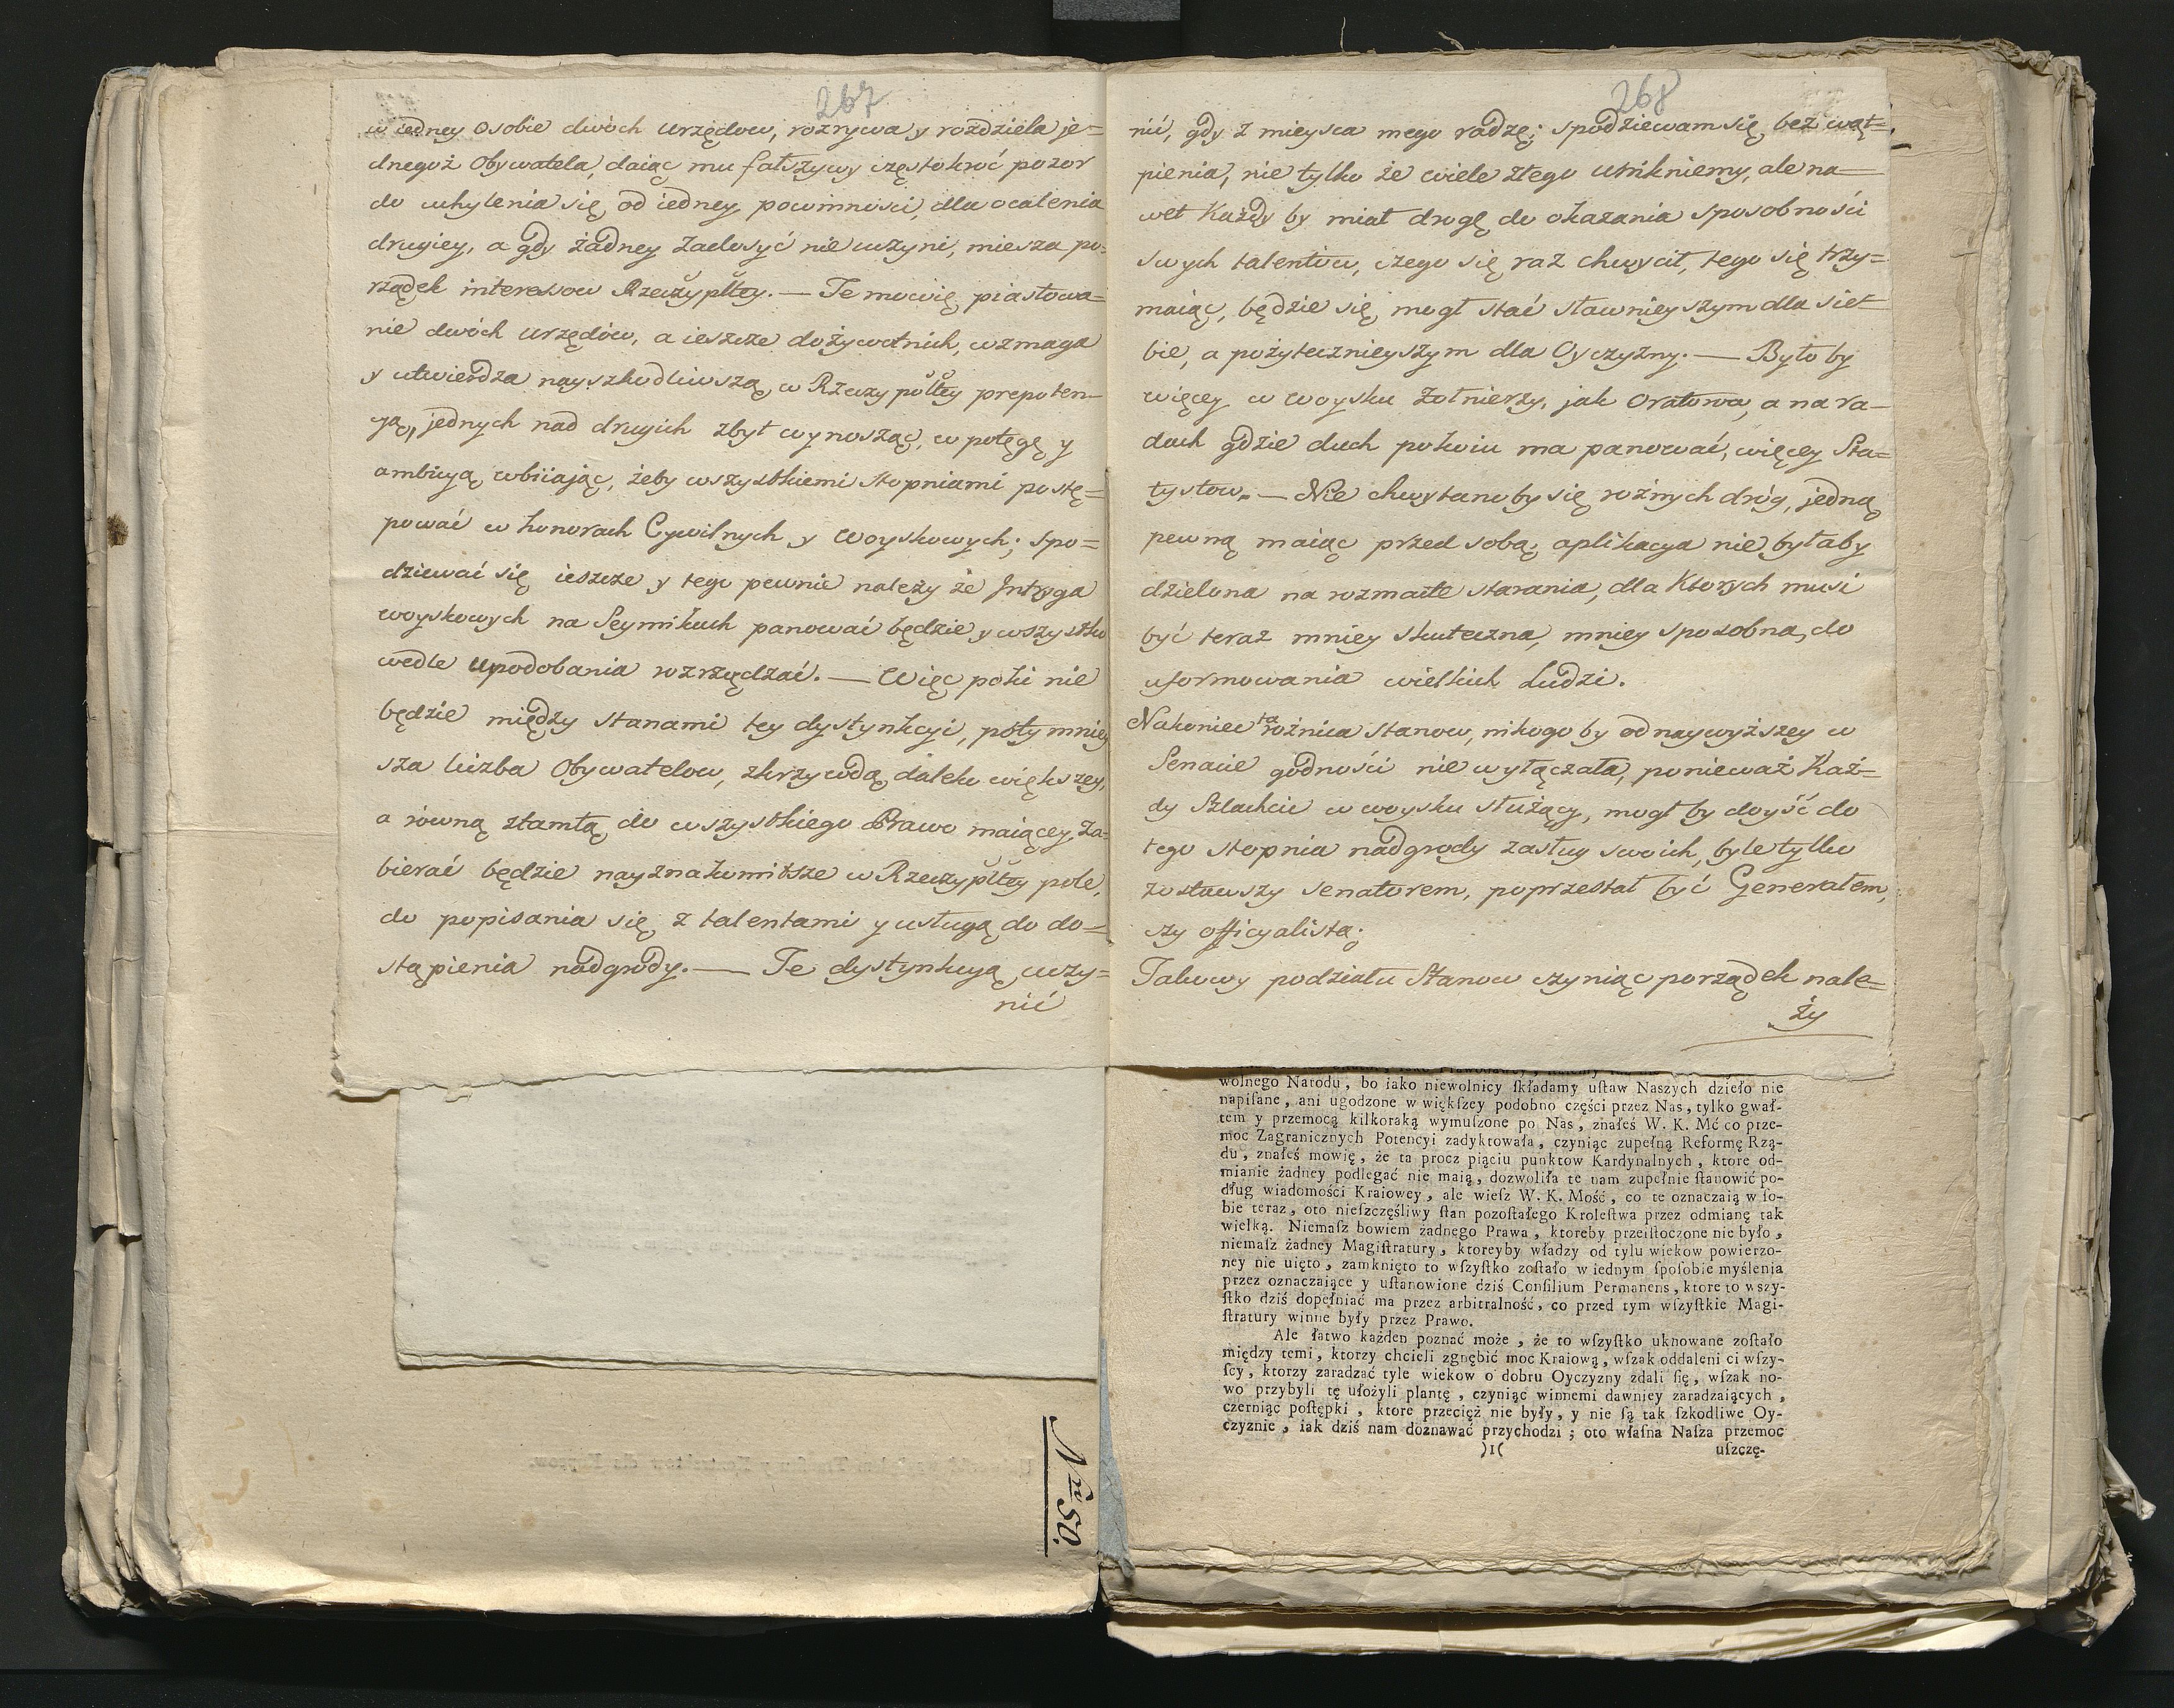 267
w iedney osobie dwóch urzędow, rozrywa y rozdziela je=
dnegoż Obywatela, daiąc mu fałszywy częstokroć pozor
do uchylenia się od iedney powinności, dla ocalenia
drugiey, a gdy żadney zadosyć nie uczyni, miesza po=
rządek interessow Rzeczyplttey. — Te mowię piastowa=
nie dwóch urzędów, a ieszcze dożywotnich, wzmaga
y utwierdza nayszkodliwszą w Rzeczypoltey prepoten=
yą, jednych nad drugich zbyt wynosząc, w potęgę y
ambicyą wbiiając, żeby wszystkiemi stopniami postę=
pować w honorach Cywilnych y Woyskowych; spo=
dziewać się ieszcze y tego pewnie należy że Intryga
woyskowych na Seymikach panować będzie y wszystko
wedle upodobania rozrządzać. — Więc poki nie
będzie między stanami tey dystynkcyi, poty mniey
sza liczba Obywatelow, zkrzywdą daleko większey,
a równą ztamtą do wszystkiego Prawo maiącey, za=
bierać będzie nayznakomitsze w Rzeczypltey pole,
do popisania się z talentami y usługą do do=
stąpienia nadgrody. — Te dystynkcyą uczy=
nić
268
nić, gdy z mieysca mego radzę; spodziewam się, bez wąt=
pienia, nie tylko że wiele złego unikniemy, ale na=
wet Każdy by miał drogę do okazania sposobności
swych talentów, czego się raz chwycił, tego się trzy=
maiąc, będzie się mogł stać sławnieyszym dla sie=
bie, a pożytecznieyszym dla Oyczyzny. — Było by
więcey w woysku Żołnierzy, jak Oratorow, a na ra=
dach gdzie duch pokoiu ma panować, więcey Sta=
tystow. — Nie chwytano by się rożnych dróg, jedną
pewną maiąc przed sobą; aplikacya nie byłaby
dzielona na rozmaite starania, dla Ktorych musi
być teraz mniey skuteczna, mniey sposobna, do
uformowania wielkich Ludzi.
Nakoniec ta rożnica stanow, nikogo by od naywyższey w
Senacie godności nie wyłączała, ponieważ Każ=
dy Szlachcic w woysku służący, mogł by doyść do
tego stopnia nadgrody zasług swoich, byle tylko
zostawszy Senatorem, poprzestał być Generałem,
czy officyalistą;
Takowy podziału Stanow czyniąc porządek nale=
ży
wolnego Narodu, bo iako niewolnicy ſkładamy uſtaw Naszych dzieło nie
napiſane, ani ugodzone w więkſzey podobno części przez Nas, tylko gwał-
tem y przemocą kilkoraką wymuſzone po Nas, znałeś W. K. Mć co prze-
moc Zagranicznych Potencyi zadyktowała, czyniąc zupełną Reformę Rzą-
du, znałeś mowię, że ta procz piąciu punktow Kardynalnych, ktore od-
mianie żadney podlegać nie maią, dozwoliła te nam zupełnie ſtanowić po-
dług wiadomości Kraiowey, ale wieſz W. K. Mość, co te oznaczaią w ſo-
bie teraz, oto nieſzczęśliwy ſtan pozoſtałego Kroleſtwa przez odmianę tak
wielką. Niemaſz bowiem żadnego Prawa, ktoreby przeiſtoczone nie było,
niemaſz żadney Magiſtratury, ktoreyby władzy od tylu wiekow powierzo-
ney nie uięto, zamknięto to wſzyſtko zoſtało w iednym ſpoſobie myślenia
przez oznaczaiące y uſtanowione dziś Conſilium Permanens, ktore to wszy-
ſtko dziś dopełniać ma przez arbitralność, co przed tym wſzyſtkie Magi-
ſtratury winne były przez Prawo.
Ale łatwo każden poznać może, że to wſzyſtko uknowane zoſtało
między temi, ktorzy chcieli zgnębić moc Kraiową, wſzak oddaleni ci wſzy-
ſcy, ktorzy zaradzać tyle wiekow o dobru Oyczyzny zdali ſię, wſzak no-
wo przybyli tę ułożyli plantę, czyniąc winnemi dawniey zaradzaiących,
czerniąc poſtępki, ktore przecięż nie były, y nie ſą tak ſzkodliwe Oy-
czyznie, iak dziś nam doznawać przychodzi; oto właſna Naſza przemoc
)1(
uſzczę-
Nr 50.